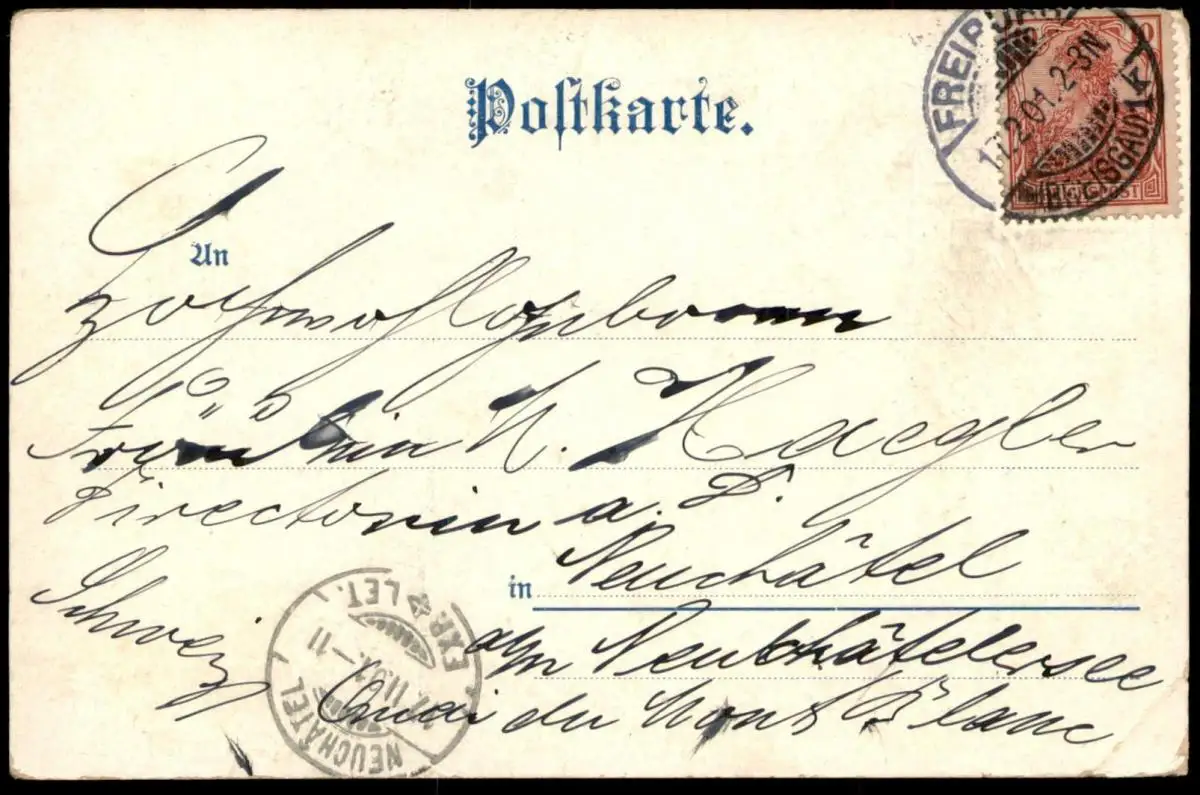 Postkarte.
FREIBURG
17.2.01.2-3N
BREISGAU) 1
REICHSPOST
10
An
Hochwohlgeboren
Fräulein N. Haegler
Directorin a. D.
in Neuchâtel
am Neuchâtelersee
Quai du Mont Blanc
Schweiz
NEUCHÂTEL
EXP. LET.